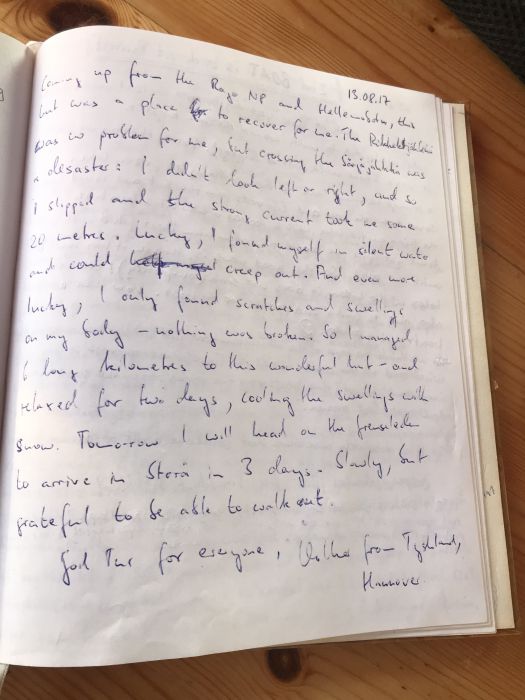 13.08.17
Coming up from the Rago NP and Hellemobotn, this
hut was a place to recover for me. The
was no problem for me, but crossing the was
a disaster: I didn't look left or right, and so
I slipped and the strong current took me some
20 metres. Lucky, I found myself in silent water
and could creep out. And even more
lucky, I only found scratches and swellings
on my body – nothing was broken. So I managed
6 long kilometres to this wonderful hut – and
relaxed for two days, cooling the swellings with
snow. Tomorrow I will head on the grensleden
to arrive in Storå in 3 days. Slowly, but
grateful to be able to walk out.
God Tur for everyone, from Tyskland,
Hannover